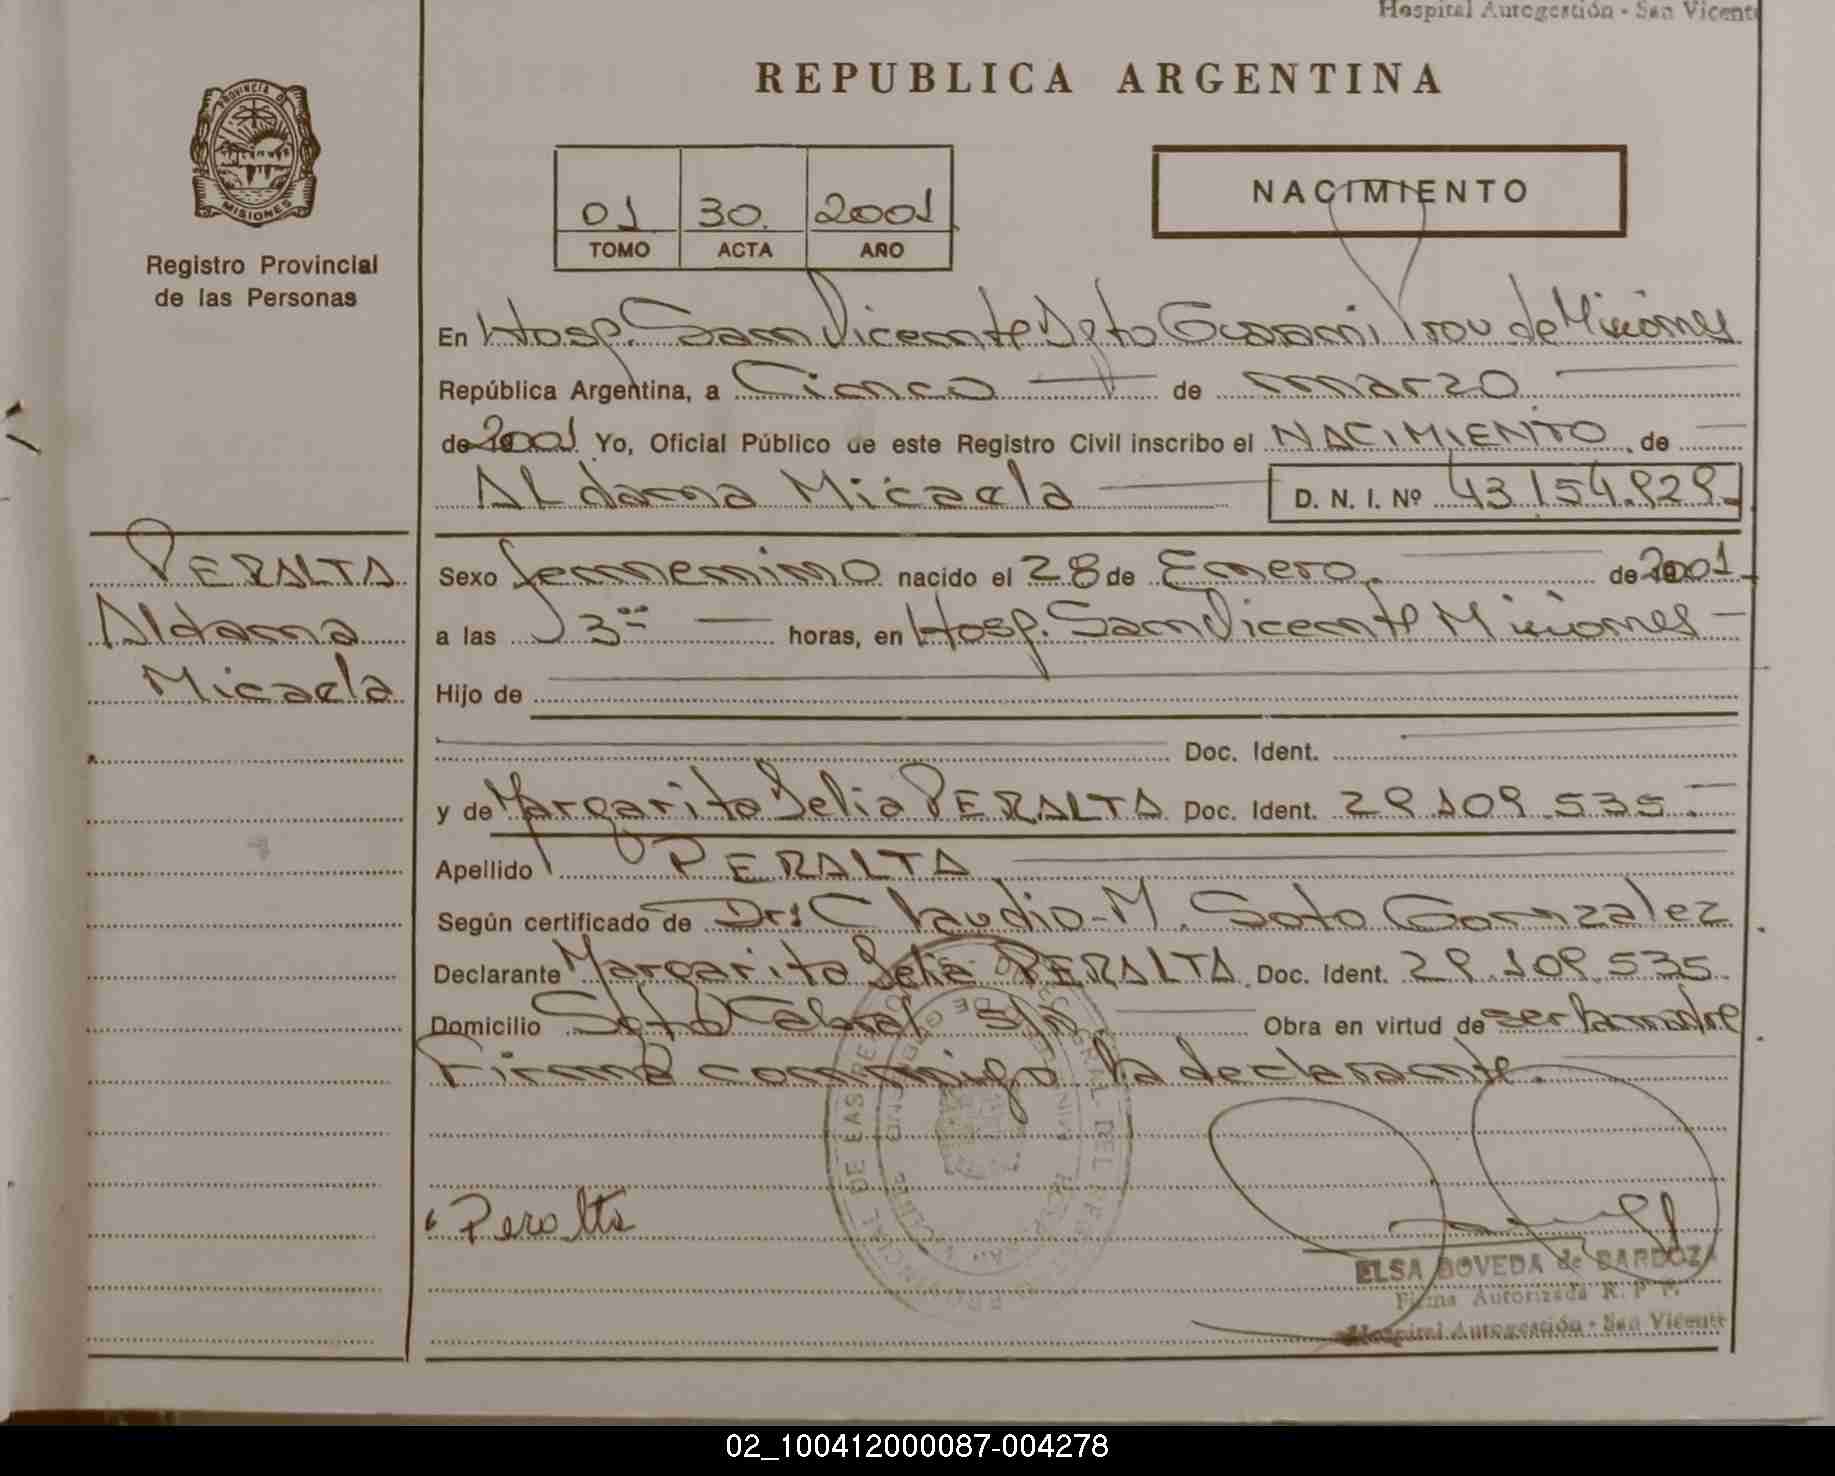 Hospital Autogestión - San Vicente
REPUBLICA ARGENTINA
PROVINCIA DE
MISIONES
Registro Provincial
de las Personas
01 30. 2001
TOMO ACTA AÑO
NACIMIENTO
En Hosp. San Vicente Dpto Guarani Prov de Misiones
República Argentina, a Cinco de marzo
de 2001 Yo, Oficial Público de este Registro Civil inscribo el NACIMIENTO de
Aldana Micaela D. N. I. Nº 43.154.929
PERALTA
Aldana
Micaela
Sexo femenino nacido el 28 de Enero. de 2001
a las 3 horas, en Hosp. San Vicente Misiones
Hijo de
Doc. Ident.
y de Margarita Delia PERALTA Doc. Ident. 29.109.535
Apellido PERALTA
Según certificado de Dr: Claudio M. Soto Gonzalez
Declarante Margarita Delia PERALTA. Doc. Ident. 29.109.535
Domicilio Cabral S/N. Obra en virtud de ser la madre
Firma conmigo la declarante.
Peralta
ELSA BOVEDA de BARBOZA
Firma Autorizada R. P. P.
Hospital Autogestión - San Vicente
02_100412000087-004278